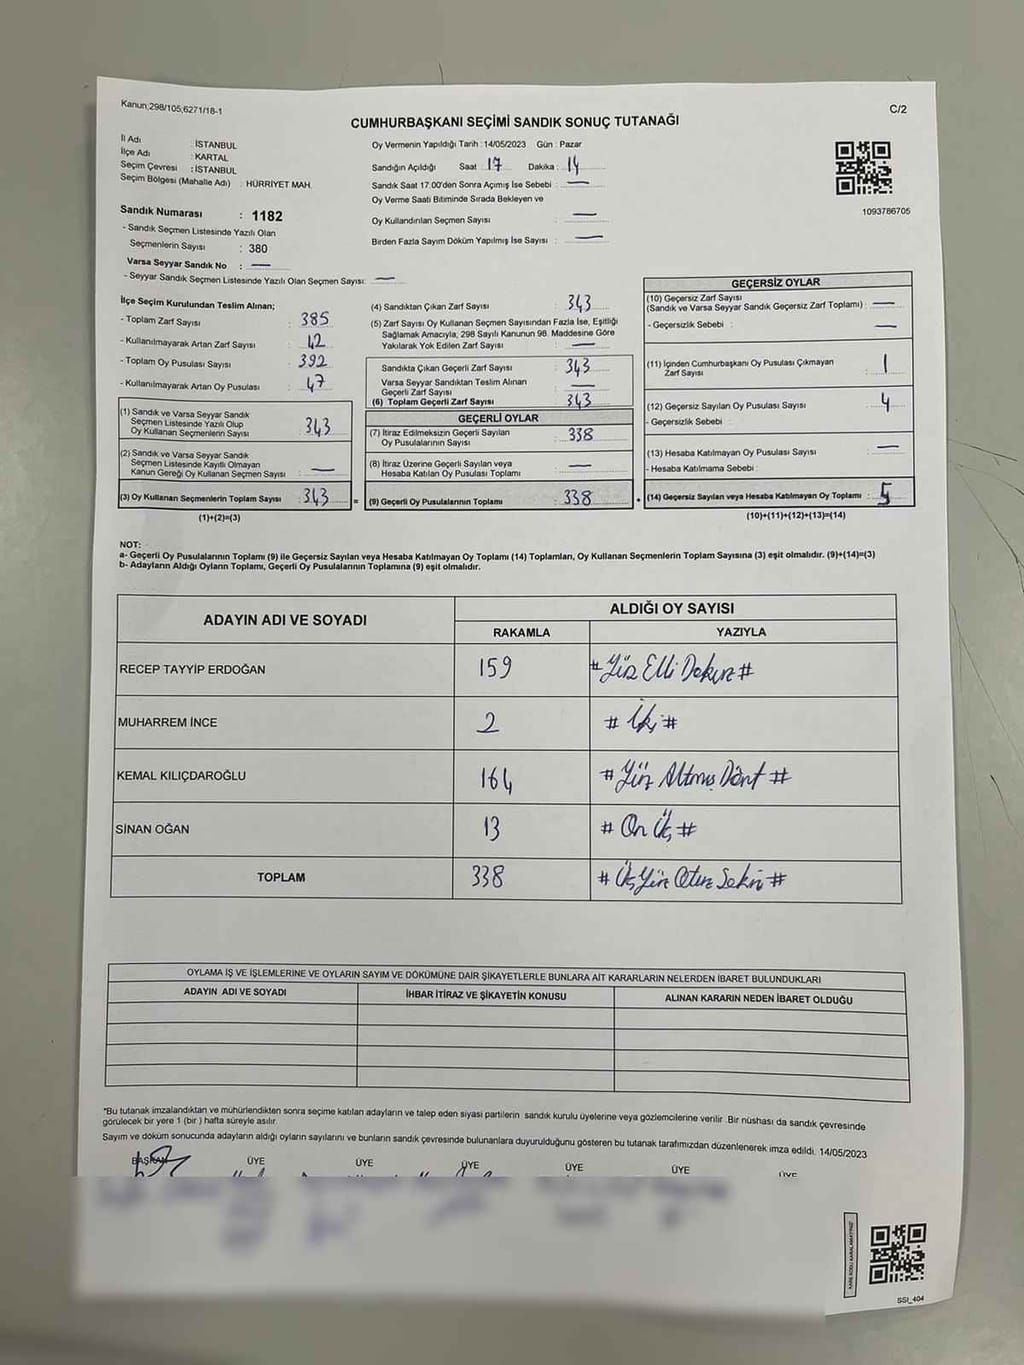 Kanun;298/105,6271/18-1
C/2
CUMHURBAŞKANI SEÇİMİ SANDIK SONUÇ TUTANAĞI
İl Adı : İSTANBUL
İlçe Adı : KARTAL
Seçim Çevresi : İSTANBUL
Seçim Bölgesi (Mahalle Adı) : HÜRRİYET MAH.
Oy Vermenin Yapıldığı Tarih : 14/05/2023 Gün : Pazar
Sandığın Açıldığı Saat : 17 Dakika : 14
Sandık Saat 17:00'den Sonra Açımış İse Sebebi : —
Oy Verme Saati Bitiminde Sırada Bekleyen ve
Oy Kullandırılan Seçmen Sayısı : —
Birden Fazla Sayım Döküm Yapılmış İse Sayısı : —
1093786705
Sandık Numarası : 1182
- Sandık Seçmen Listesinde Yazılı Olan
Seçmenlerin Sayısı : 380
Varsa Seyyar Sandık No : —
- Seyyar Sandık Seçmen Listesinde Yazılı Olan Seçmen Sayısı: —
İlçe Seçim Kurulundan Teslim Alınan;
- Toplam Zarf Sayısı : 385
- Kullanılmayarak Artan Zarf Sayısı : 42
- Toplam Oy Pusulası Sayısı : 392
- Kullanılmayarak Artan Oy Pusulası : 47
(1) Sandık ve Varsa Seyyar Sandık
Seçmen Listesinde Yazılı Olup
Oy Kullanan Seçmenlerin Sayısı : 343
(2) Sandık ve Varsa Seyyar Sandık
Seçmen Listesinde Kayıtlı Olmayan
Kanun Gereği Oy Kullanan Seçmen Sayısı : —
(3) Oy Kullanan Seçmenlerin Toplam Sayısı : 343
(1)+(2)=(3)
(4) Sandıktan Çıkan Zarf Sayısı : 343
(5) Zarf Sayısı Oy Kullanan Seçmen Sayısından Fazla İse, Eşitliği
Sağlamak Amacıyla, 298 Sayılı Kanunun 98. Maddesine Göre
Yakılarak Yok Edilen Zarf Sayısı : —
Sandıkta Çıkan Geçerli Zarf Sayısı : 343
Varsa Seyyar Sandıktan Teslim Alınan
Geçerli Zarf Sayısı : —
(6) Toplam Geçerli Zarf Sayısı : 343
GEÇERLİ OYLAR
(7) İtiraz Edilmeksizin Geçerli Sayılan
Oy Pusulalarının Sayısı : 338
(8) İtiraz Üzerine Geçerli Sayılan veya
Hesaba Katılan Oy Pusulası Toplamı : —
= (9) Geçerli Oy Pusulalarının Toplamı : 338
GEÇERSİZ OYLAR
(10) Geçersiz Zarf Sayısı
(Sandık ve Varsa Seyyar Sandık Geçersiz Zarf Toplamı) : —
- Geçersizlik Sebebi : —
(11) İçinden Cumhurbaşkanı Oy Pusulası Çıkmayan
Zarf Sayısı : 1
(12) Geçersiz Sayılan Oy Pusulası Sayısı : 4
- Geçersizlik Sebebi :
(13) Hesaba Katılmayan Oy Pusulası Sayısı : —
- Hesaba Katılmama Sebebi :
+ (14) Geçersiz Sayılan veya Hesaba Katılmayan Oy Toplamı : 5
(10)+(11)+(12)+(13)=(14)
NOT:
a- Geçerli Oy Pusulalarının Toplamı (9) ile Geçersiz Sayılan veya Hesaba Katılmayan Oy Toplamı (14) Toplamları, Oy Kullanan Seçmenlerin Toplam Sayısına (3) eşit olmalıdır. (9)+(14)=(3)
b- Adayların Aldığı Oyların Toplamı, Geçerli Oy Pusulalarının Toplamına (9) eşit olmalıdır.
ADAYIN ADI VE SOYADI
ALDIĞI OY SAYISI
RAKAMLA YAZIYLA
RECEP TAYYİP ERDOĞAN 159 # Yüz Elli Dokuz #
MUHARREM İNCE 2 # İki #
KEMAL KILIÇDAROĞLU 164 # Yüz Altmış Dört #
SİNAN OĞAN 13 # On Üç #
TOPLAM 338 # Üç Yüz Otuz Sekiz #
OYLAMA İŞ VE İŞLEMLERİNE VE OYLARIN SAYIM VE DÖKÜMÜNE DAİR ŞİKAYETLERLE BUNLARA AİT KARARLARIN NELERDEN İBARET BULUNDUKLARI
ADAYIN ADI VE SOYADI İHBAR İTİRAZ VE ŞİKAYETİN KONUSU ALINAN KARARIN NEDEN İBARET OLDUĞU
*Bu tutanak imzalandıktan ve mühürlendikten sonra seçime katılan adayların ve talep eden siyasi partilerin sandık kurulu üyelerine veya gözlemcilerine verilir. Bir nüshası da sandık çevresinde
görülecek bir yere 1 (bir ) hafta süreyle asılır.
Sayım ve döküm sonucunda adayların aldığı oyların sayılarını ve bunların sandık çevresinde bulunanlara duyurulduğunu gösteren bu tutanak tarafımızdan düzenlenerek imza edildi. 14/05/2023
BAŞKAN ÜYE ÜYE ÜYE ÜYE ÜYE ÜYE
SSI_404